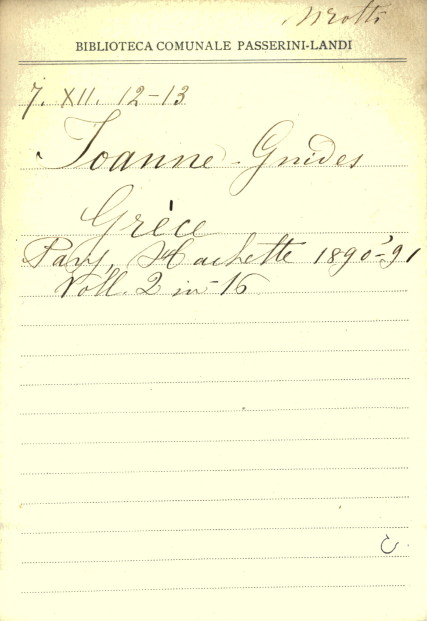 BIBLIOTECA COMUNALE PASSERINI-LANDI
7. XII. 12-13
Joanne - Guides
Grèce
Paris, Hachette 1890-91
Voll. 2 in 16